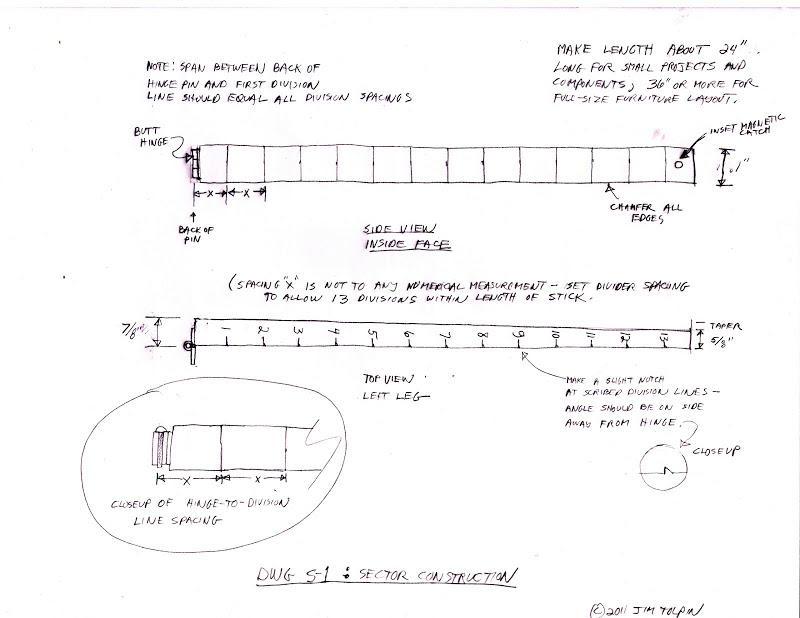 NOTE: SPAN BETWEEN BACK OF
HINGE PIN AND FIRST DIVISION
LINE SHOULD EQUAL ALL DIVISION SPACINGS
MAKE LENGTH ABOUT 24".
LONG FOR SMALL PROJECTS AND
COMPONENTS; 36" OR MORE FOR
FULL-SIZE FURNITURE LAYOUT.
BUTT
HINGE
INSET MAGNETIC
CATCH
1"
X X
BACK OF
PIN
CHAMFER ALL
EDGES
SIDE VIEW
INSIDE FACE
(SPACING "X" IS NOT TO ANY NUMERICAL MEASUREMENT - SET DIVIDER SPACING
TO ALLOW 13 DIVISIONS WITHIN LENGTH OF STICK.
7/8"
1 2 3 4 5 6 7 8 9 10 11 12 13
TAPER
5/8"
TOP VIEW
LEFT LEG
MAKE A SLIGHT NOTCH
AT SCRIBED DIVISION LINES -
ANGLE SHOULD BE ON SIDE
AWAY FROM HINGE.
CLOSEUP
X X
CLOSEUP OF HINGE-TO-DIVISION
LINE SPACING
DWG S-1 : SECTOR CONSTRUCTION
(C) 2011 JIM TOLPIN